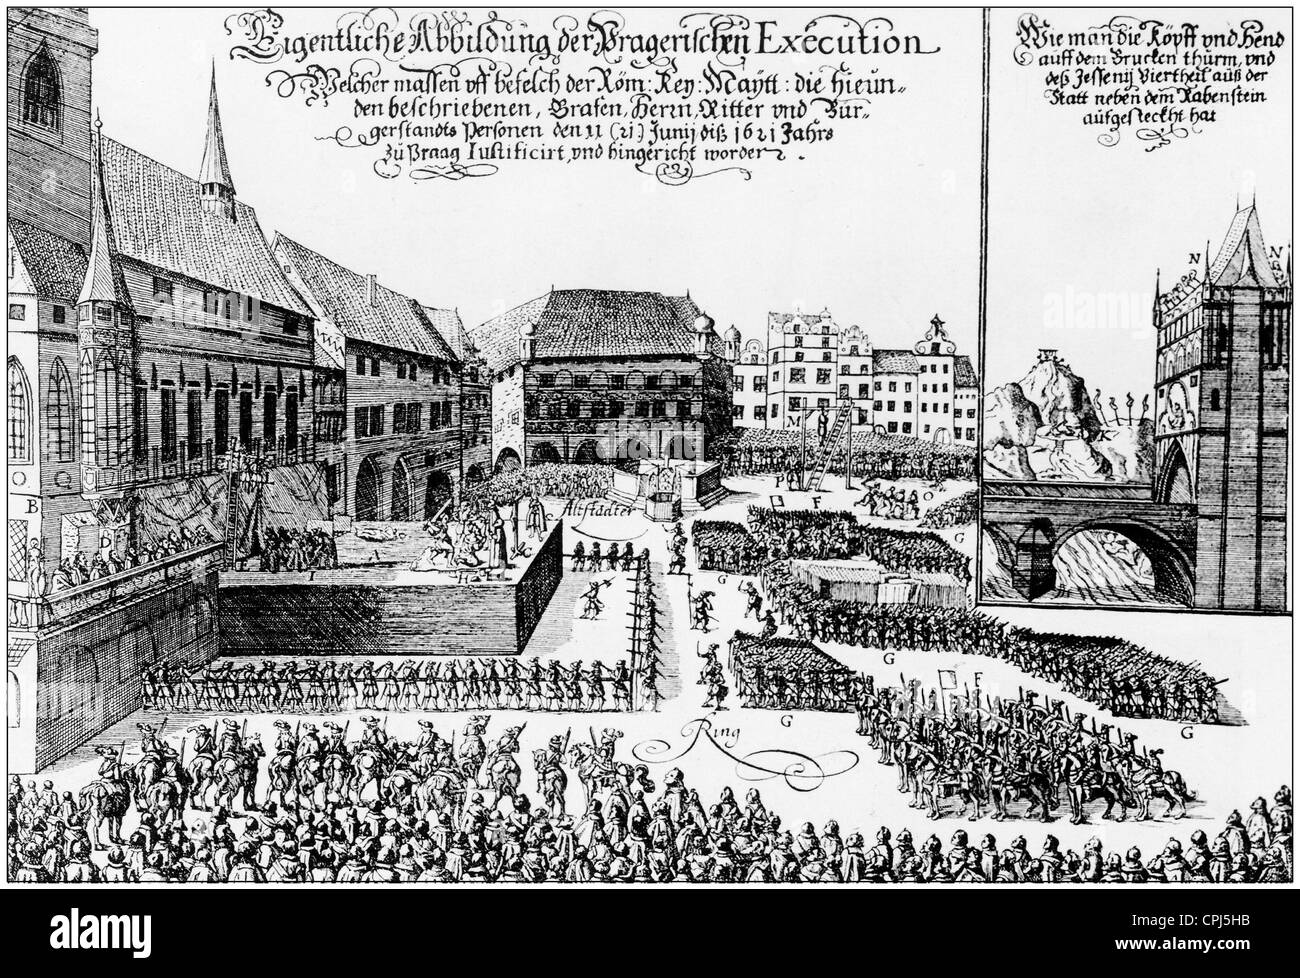 Eigentliche Abbildung der Pragerischen Execution
Welcher massen vff befelch der Röm: Key: Maytt: die hieun⸗
den beschriebenen, Grafen, Herrn, Ritter vnd Bür⸗
gerstandts Personen den 11 (21) Junij diß 1621 Jahrs
zu Praag Iustificirt, vnd hingericht worden.
Wie man die Köpff vnd Hend
auff dem Brucken thurm, vnd
deß Jessenij Viertheil auß der
Statt neben dem Rabenstein
auffgesteckht hat
N N
N
M
K
B
D
P F O
Altstädter
A
G
E I H C
G
G
G F
G G
Ring
alamy
alamy
Image ID: CPJ5HB
www.alamy.com